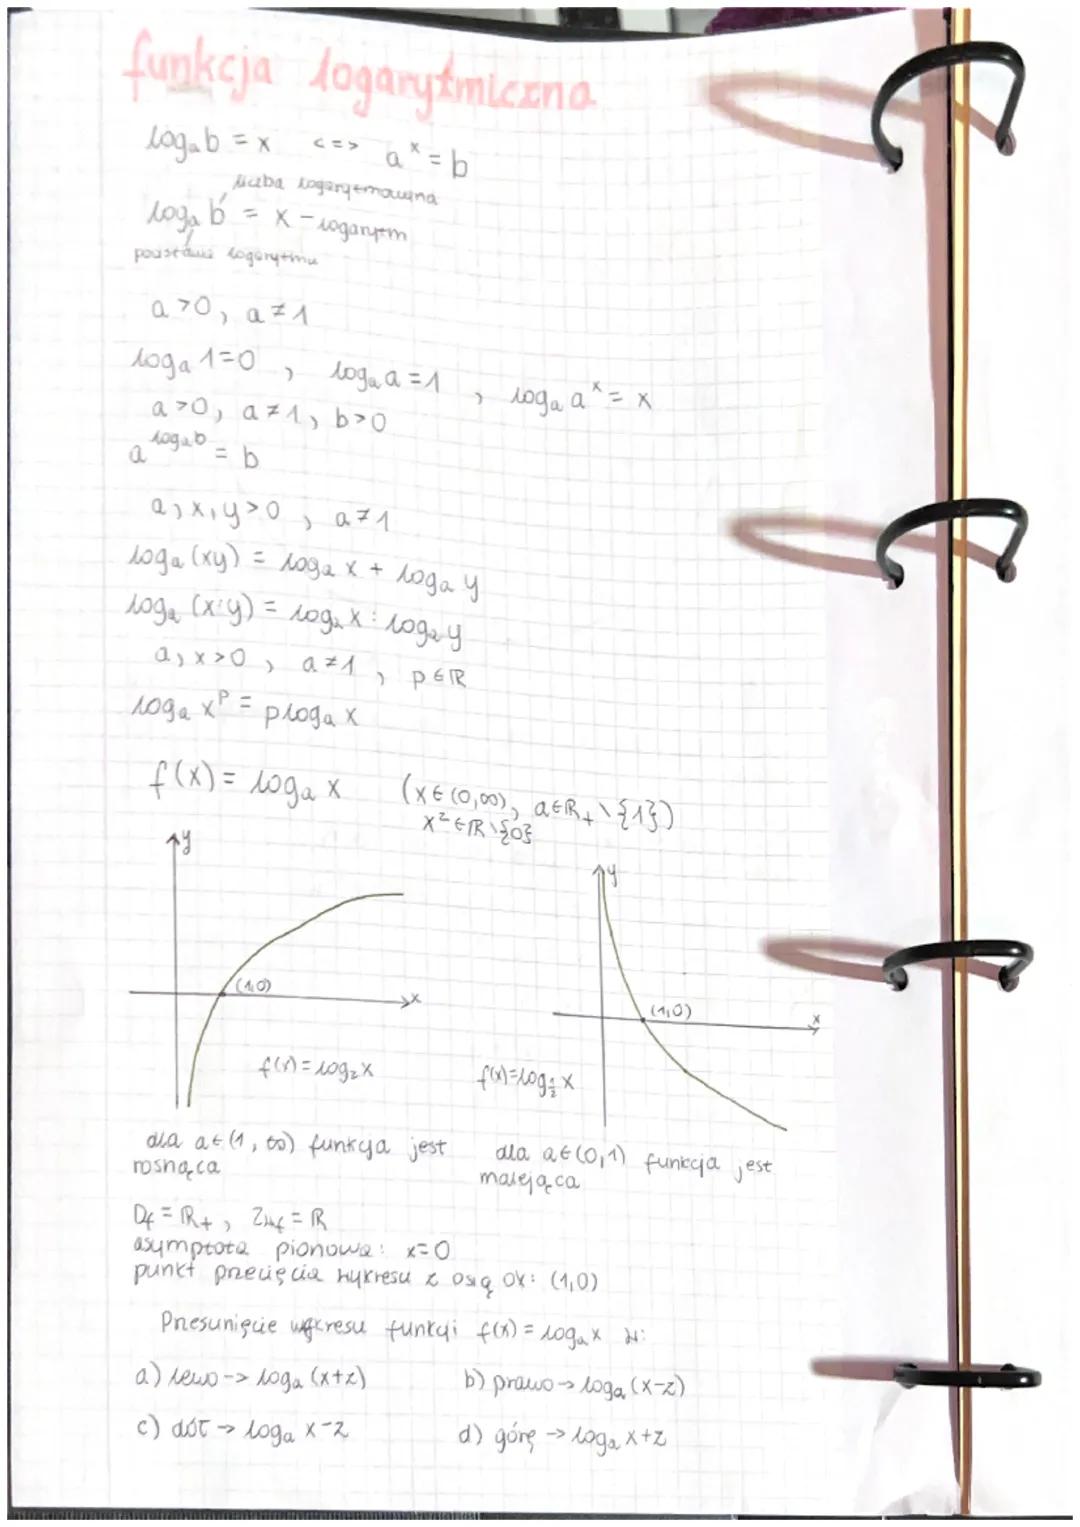 funkcja logarytmiczna
log_a b = x <=> a^x = b
liczba logarytmowana
log_a b = x - logarytm
podstawa logarytmu
a>0, a≠1
log_a 1=0, log_a a=1, log_a a^x = x
a>0, a≠1, b>0
a^(log_a b) = b
a,x,y>0, a≠1
log_a (xy) = log_a x + log_a y
log_a (x:y) = log_a x : log_a y
a,x>0, a≠1, p∈ℝ
log_a x^p = p log_a x
f(x) = log_a x (x∈(0,∞), a∈ℝ_+ \ {1})
x²∈ℝ\{0}
y
y
(1,0)
x
(1,0)
x
f(x)=log_2 x
f(x)=log_½ x
dla a∈(1,∞) funkcja jest
rosnąca
dla a∈(0,1) funkcja jest
malejąca
D_f = ℝ_+, ZW_f = ℝ
asymptota pionowa: x=0
punkt przecięcia wykresu z osią OX: (1,0)
Przesunięcie wykresu funkcji f(x) = log_a x w:
a) lewo -> log_a (x+z)
b) prawo -> log_a (x-z)
c) dół -> log_a x-z
d) górę -> log_a x+z